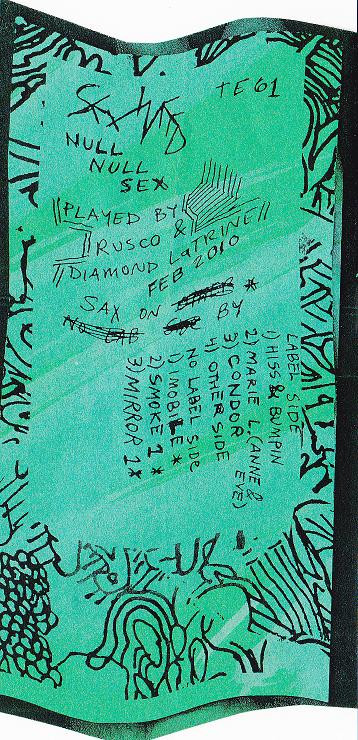 TE61
NULL
NULL
SEX
PLAYED BY
RUSCO &
DIAMOND LATRINE
FEB 2010
SAX ON
BY *
LABEL SIDE
1) HISS & BUMPIN
2) MARIE L. (ANNE & EVE)
3) CONDOR
4) OTHER SIDE
NO LABEL SIDE
1) IMOBILE *
2) SMOKE 1 *
3) MIRROR 1 *